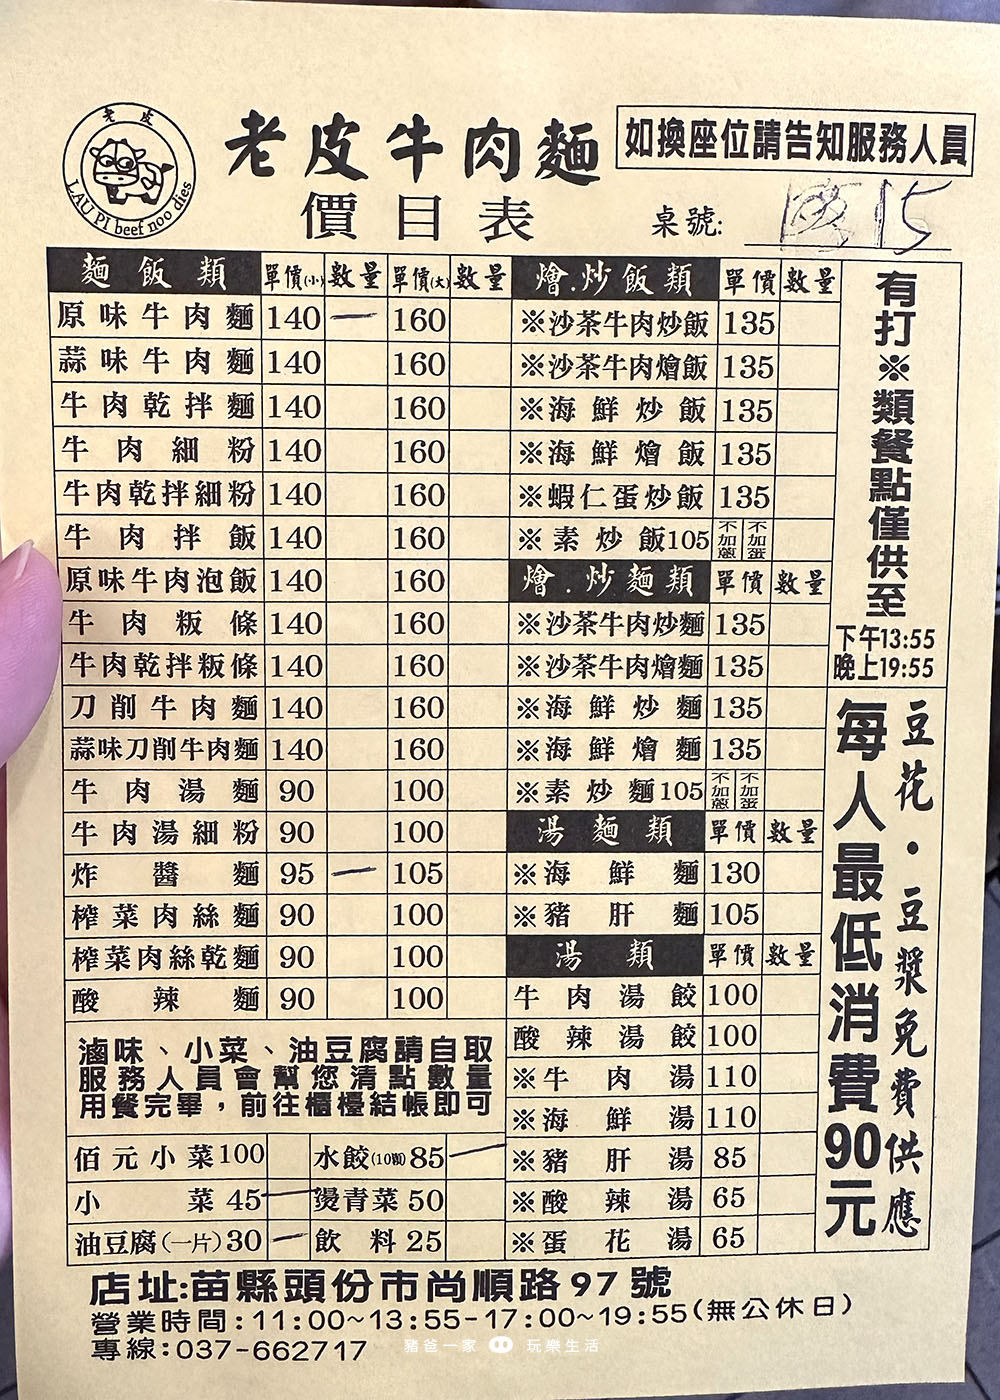 老皮
LAU PI beef noo dies
老皮牛肉麵
如換座位請告知服務人員
價目表
桌號: 15
麵飯類 單價(小) 數量 單價(大) 數量
原味牛肉麵 140 一 160
蒜味牛肉麵 140 160
牛肉乾拌麵 140 160
牛肉細粉 140 160
牛肉乾拌細粉 140 160
牛肉拌飯 140 160
原味牛肉泡飯 140 160
牛肉粄條 140 160
牛肉乾拌粄條 140 160
刀削牛肉麵 140 160
蒜味刀削牛肉麵 140 160
牛肉湯麵 90 100
牛肉湯細粉 90 100
炸醬麵 95 一 105
榨菜肉絲麵 90 100
榨菜肉絲乾麵 90 100
酸辣麵 90 100
滷味、小菜、油豆腐請自取
服務人員會幫您清點數量
用餐完畢，前往櫃檯結帳即可
佰元小菜100 水餃(10顆)85 一
小菜45 一 燙青菜50
油豆腐(一片)30 一 飲料25
燴.炒飯類 單價 數量
※沙茶牛肉炒飯 135
※沙茶牛肉燴飯 135
※海鮮炒飯 135
※海鮮燴飯 135
※蝦仁蛋炒飯 135
※素炒飯105 不加蔥 不加蛋
燴.炒麵類 單價 數量
※沙茶牛肉炒麵 135
※沙茶牛肉燴麵 135
※海鮮炒麵 135
※海鮮燴麵 135
※素炒麵105 不加蔥 不加蛋
湯麵類 單價 數量
※海鮮麵 130
※豬肝麵 105
湯類 單價 數量
牛肉湯餃 100
酸辣湯餃 100
※牛肉湯 110
※海鮮湯 110
※豬肝湯 85
※酸辣湯 65
※蛋花湯 65
有打※類餐點僅供至
下午13:55
晚上19:55
豆花・豆漿免費供應
每人最低消費90元
店址:苗縣頭份市尚順路97號
營業時間:11:00~13:55-17:00~19:55(無公休日)
專線:037-662717
豬爸一家 玩樂生活